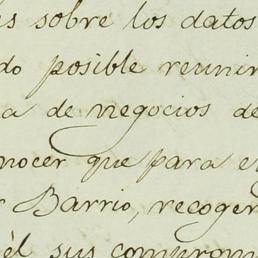 es sobre los datos
do posible reunir
a de negocios de
nocer que para e
r Barrio, recoger
él sus comprom